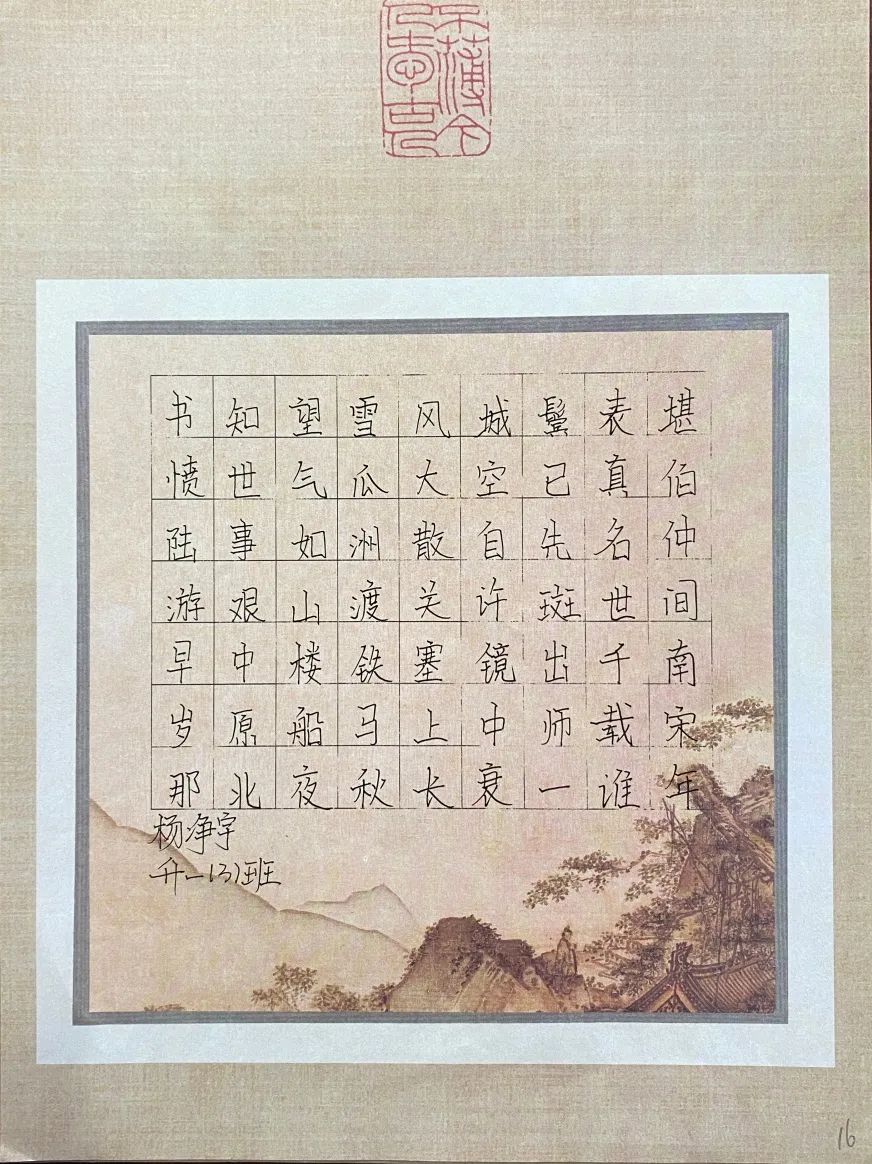 不薄今
人爱古人
书愤陆游早岁那
知世事艰中原北
望气如山楼船夜
雪瓜洲渡铁马秋
风大散关塞上长
城空自许镜中衰
鬓已先斑出师一
表真名世千载谁
堪伯仲间南宋年
杨净宇
升一(3)班
16